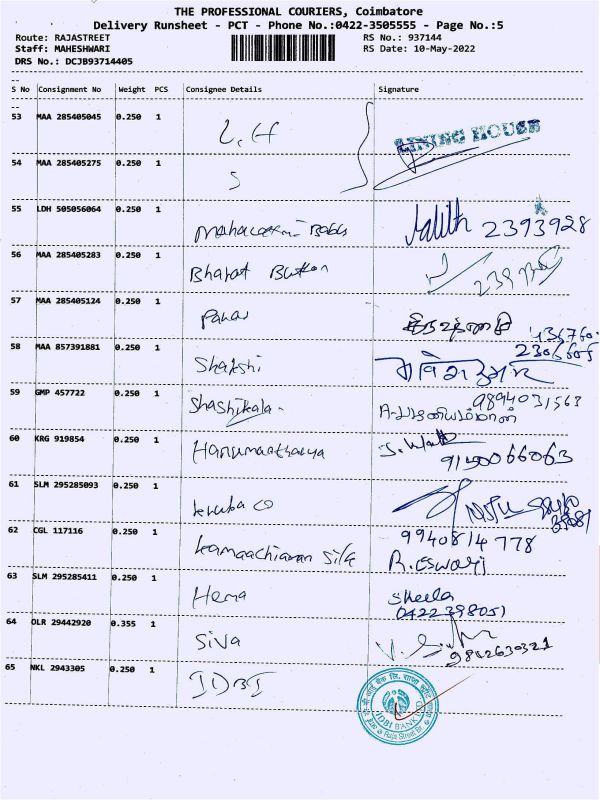 THE PROFESSIONAL COURIERS, Coimbatore
Delivery Runsheet - PCT - Phone No.:0422-3505555 - Page No.:5
Route: RAJASTREET RS No.: 937144
Staff: MAHESHWARI RS Date: 10-May-2022
DRS No.: DCJB93714405
S No Consignment No Weight PCS Consignee Details Signature
53 MAA 285405045 0.250 1 L.H LINING HOUSE
54 MAA 285405275 0.250 1
55 LDH 505056064 0.250 1 Lalith 2393928
56 MAA 285405283 0.250 1 Bharat Button 239
57 MAA 285405124 0.250 1 Pawar
58 MAA 857391881 0.250 1 Shakshi 2306605
59 GMP 457722 0.250 1 Shashikala - 9894031563
60 KRG 919854 0.250 1 9150066063
61 SLM 295285093 0.250 1
62 CGL 117116 0.250 1 9940814778
R. Eswari
63 SLM 295285411 0.250 1 Hema Sheela
0422398051
64 OLR 29442920 0.355 1 Siva 9842630321
65 NKL 2943305 0.250 1 IDBI IDBI BANK LTD
Raja Street Br.